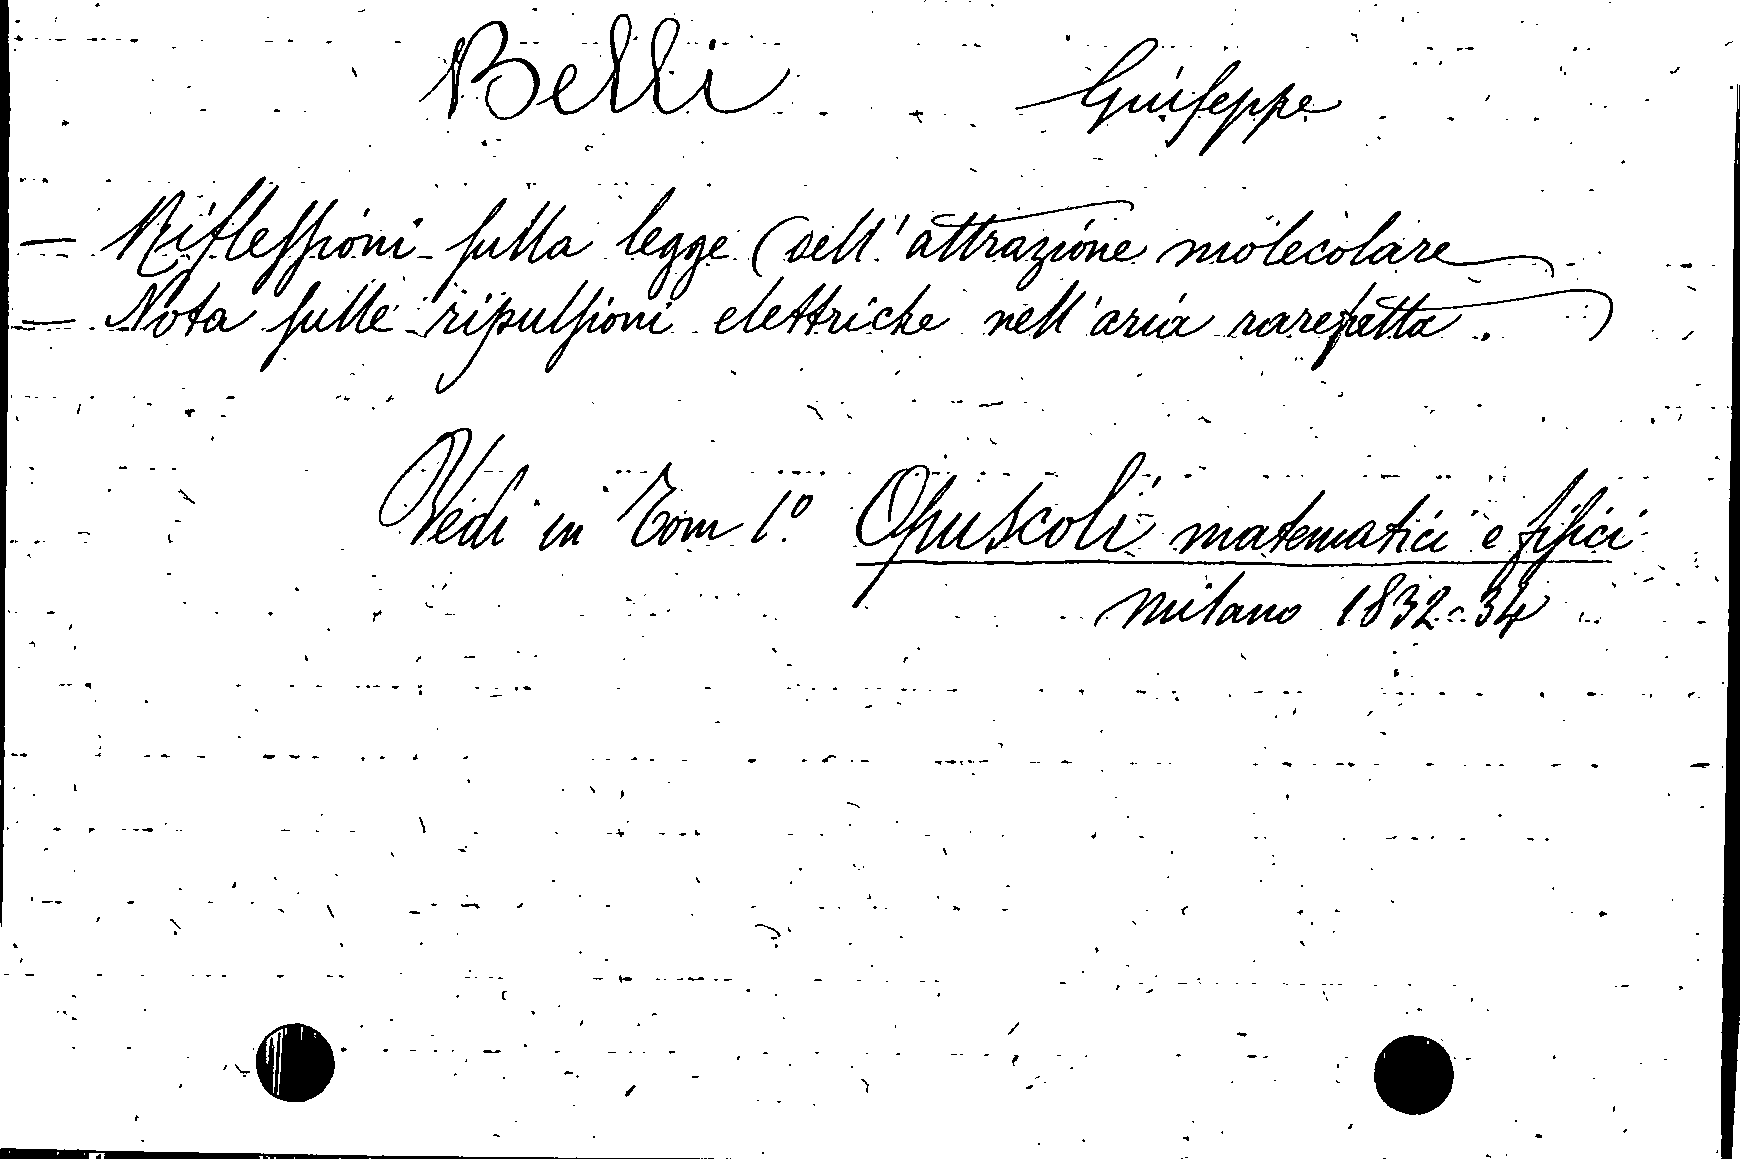 Belli Giuseppe
— Riflessioni sulla legge dell'attrazione molecolare
— Nota sulle ripulsioni elettriche nell'aria rarefatta.
Vedi in Tom 1.º Opuscoli matematici e fisici
Milano 1832-34